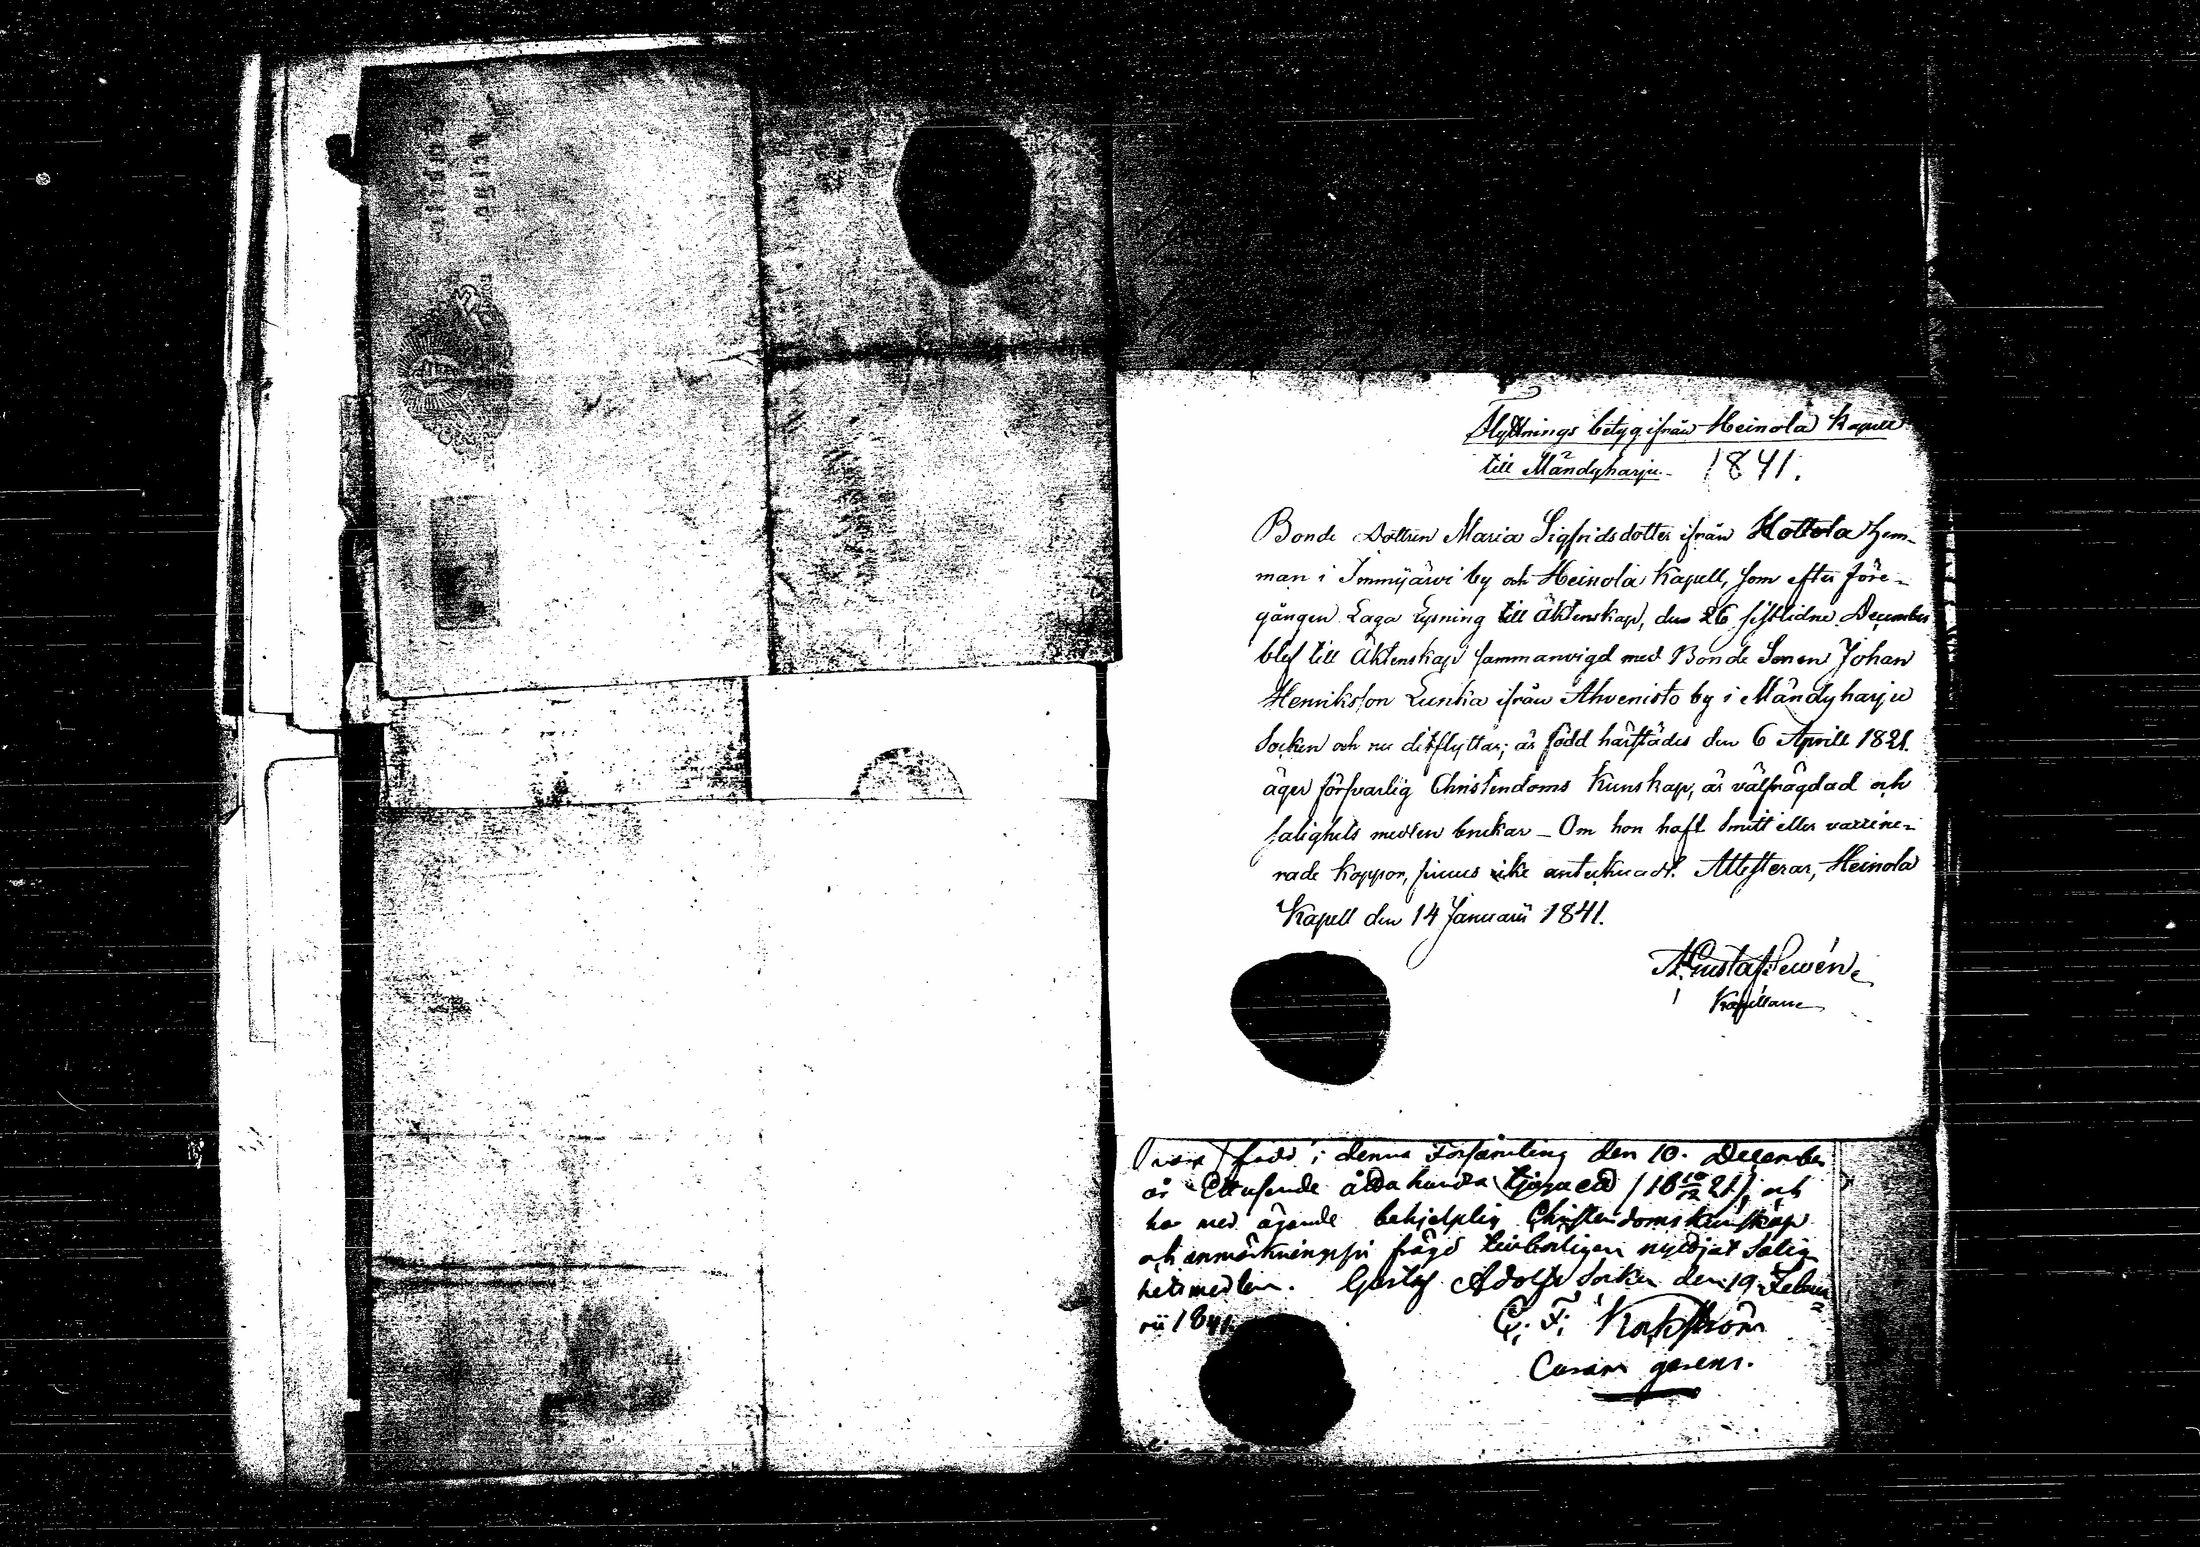 Flyttnings betyg ifrån Heinola Kapell
till Mändyharju. 1841.
Bonde Dottren Maria Sigfridsdotter ifrån Kottola Hem-
man i Immijärvi by och Heinola Kapell, som efter före-
gången Laga Lysning till Äktenskap, den 26 sistlidne December
blef till Äktenskap sammanvigd med Bonde Sonen Johan
Henriksson Lunka ifrån Ahvenisto by i Mändyharju
Socken och nu ditflyttar; är född härstädes den 6 Aprill 1821.
äger försvarlig Christendoms Kunskap, är välfrägdad och
salighets medlen brukar _ Om hon haft Smitt eller vaccine-
rade koppor, finnes icke antecknadt. Attesterar, Heinola
Kapell den 14 Januarii 1841.
Gustaf
Kapellane
född i denna Församling den 10. December
år Ettusende åtta hundra tjuguett (18 10/12 21), och
har med ägande behjelplig Christendomskunskap
och anmärkningsfri frägd nyttjat Salig
hetsmedlen. Gustaf Adolfs Socken den 19 Februa
rii 1841.
C. F.
Curam gerens.